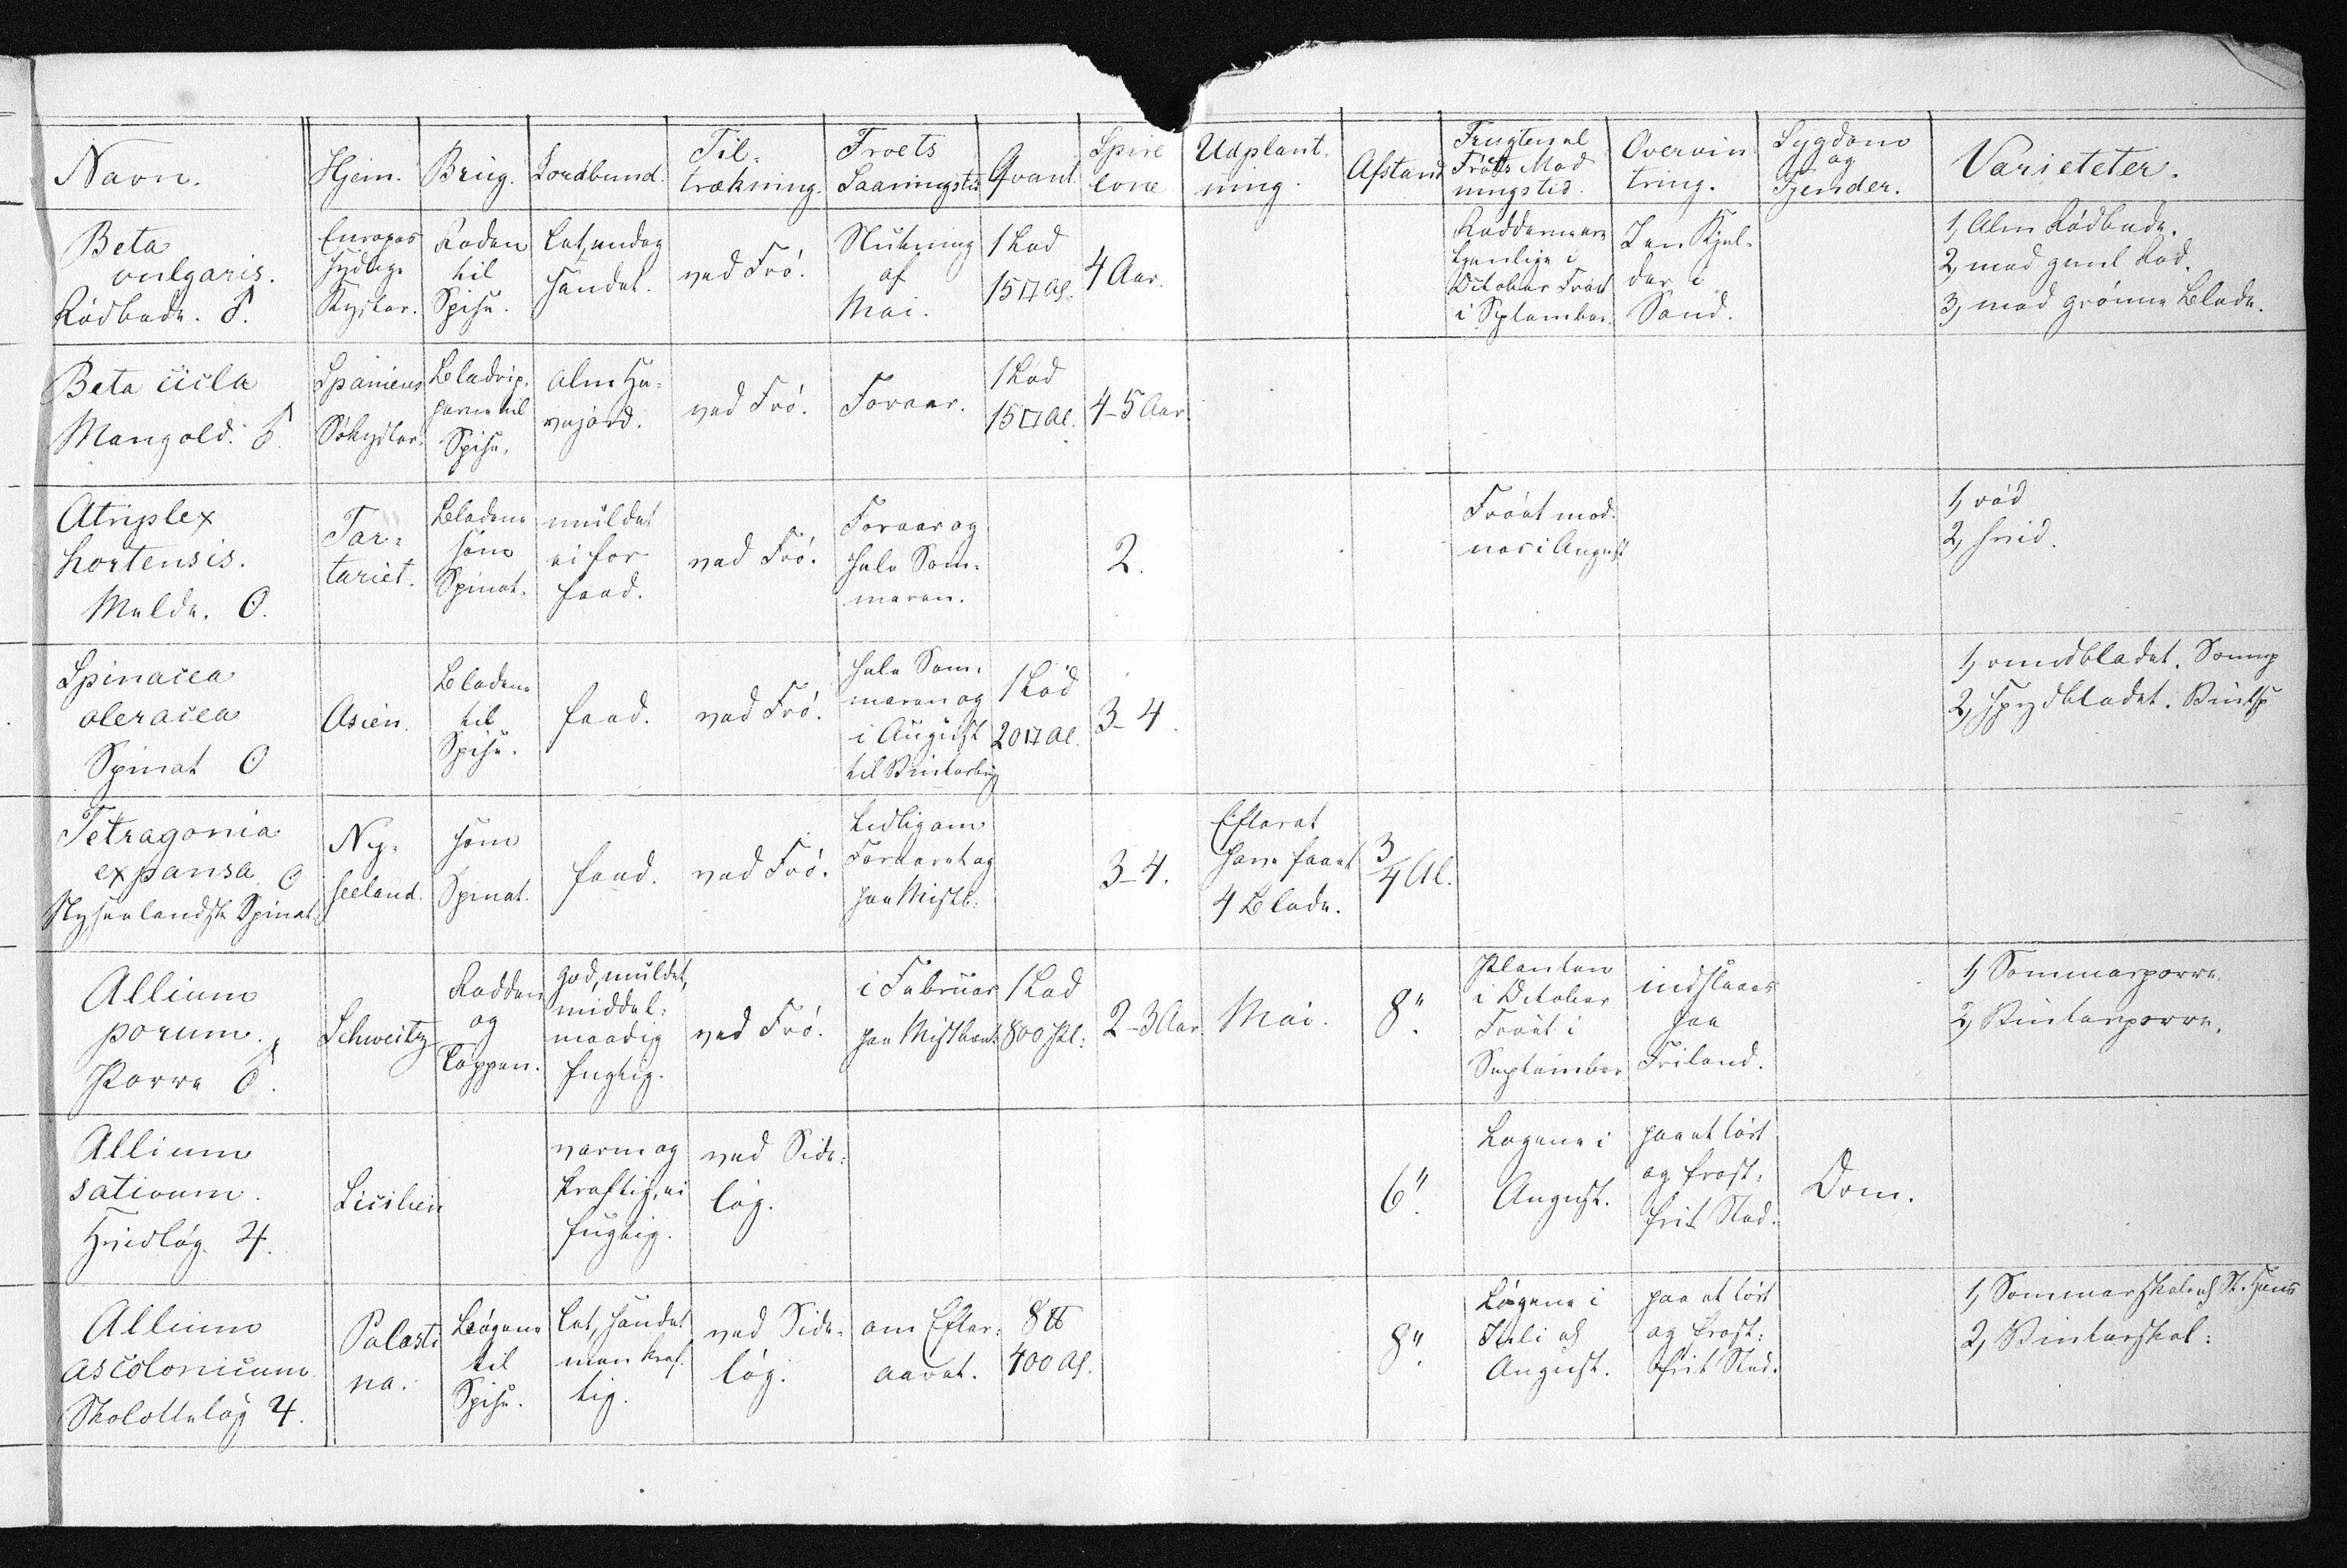 Navn.
Hjem.
Brug.
Jordbund.
Til-
trækning.
Froets
Saaningstid
Qvant.
Spire
evne
Udplant-
ning.
Afstand
Frugten el
Frøets Mod
ningstid.
Overvin
tring.
Sygdom
og
Fjender.
Varieteter.
Beta
vulgaris.
Rødbede. ♂.
Europas
sydlige
Kyster.
Roden
til
Spise.
Let, endog
sandet.
ved Frø.
Slutning
af
Mai.
1 Lod
15 □ Al.
4 Aar.
October Frøet
i September.
Kjel-
der i
Sand.
1, Alm Rødbede.
2, med guul Rod.
3, med grønne Blade.
Beta cicla
Mangold. ♂.
Spaniens
Søkyster.
Bladrip-
perne til
Spise.
alm Ha-
vejord.
ved Frø.
Foraar.
1 Lod
15 □ Al.
4-5 Aar.
Atriplex
hortensis.
Melde. ʘ.
Tar-
tariet.
Bladene
som
Spinat.
muldet
ei for
feed.
ved Frø.
Foraar og
hele Som-
meren.
2.
Frøet mod-
nes i August
1, rød
2, hvid.
Spinacea
oleracea
Spinat ʘ
Asien.
Bladene
til
Spise.
feed.
ved Frø.
hele Som-
meren og
i August
til Vinterbrug
1 Lod
20 □ Al.
3-4.
1, rundbladet. Somsp
2, spydbladet. Vintsp
Tetragonia
expansa ʘ
Nyseelandske Spinat
Ny-
seeland.
som
Spinat.
feed.
ved Frø.
tidlig om
Foraaret og
paa Mistb.
3-4.
Efterat
have faaet
4 Blade.
3/4 Al.
Allium
porum.
Porre ♂.
Schweitz
Rodden
og
Toppen.
god, muldet,
middel-
maadig
fugtig.
ved Frø.
i Februar
paa Mistbænk
1 Lod
800 Pl:
2-3 Aar.
Mai.
8".
Planten
i October
Frøet i
September
indslaaes
paa
Friland.
1, Sommerporre.
2, Vinterporre.
Allium
sativum.
Hvidløg. ♃.
Sicilien
varm og
kraftig, ei
fugtig.
ved Side-
løg.
6".
Løgene i
August.
paa et tört
og frost-
frit Sted.
Orm.
Allium
ascolonicum
Skalotteløg ♃.
Palæsti
na.
Løgene
til
Spise.
Let, sandet
men kraf-
tig.
ved Side-
løg.
om Efter-
aaret.
8 ℔
400 Al.
8".
Løgene i
Juli og
August.
paa et tört
og frost-
frit Sted.
1, Sommerskal St. Hans
2, Vinterskal: